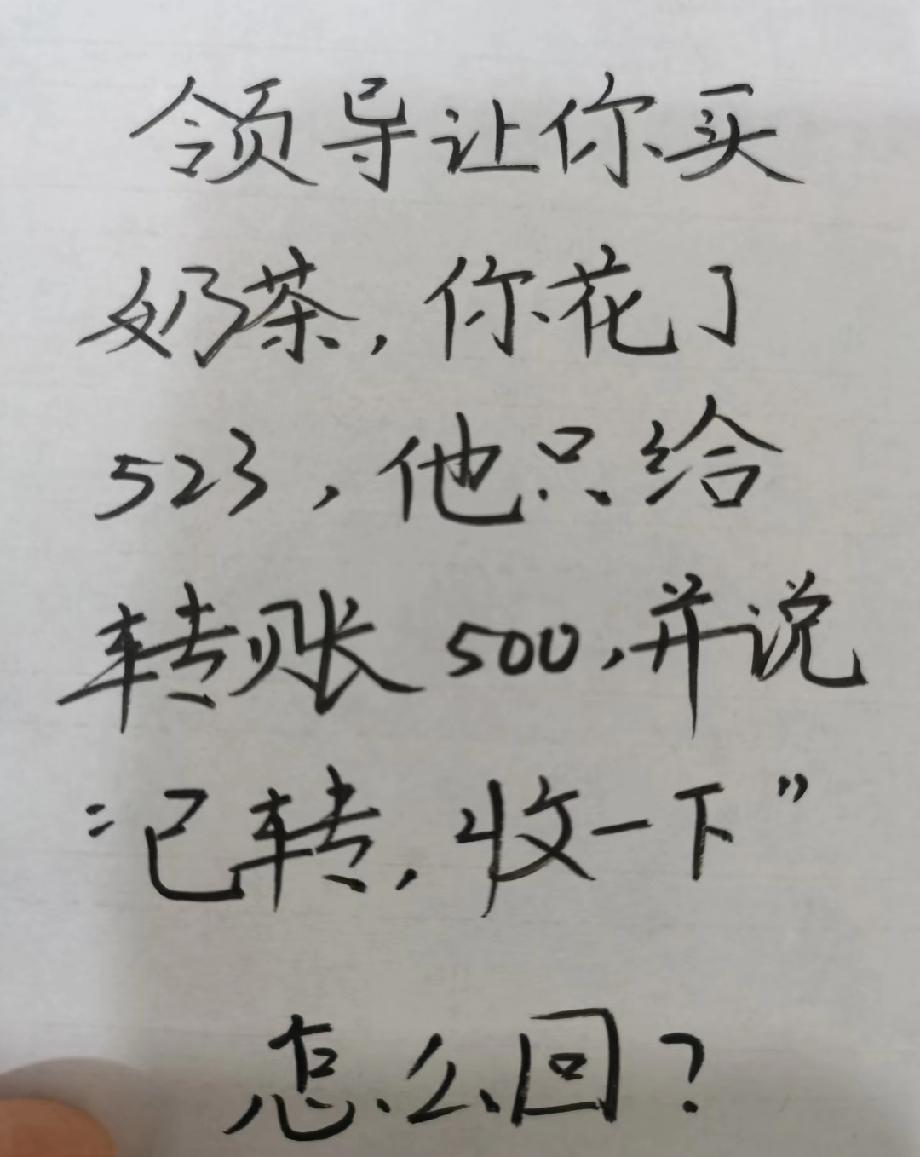 领导让你买
奶茶，你花了
523，他只给
转账500，并说
“已转，收一下”
怎么回？